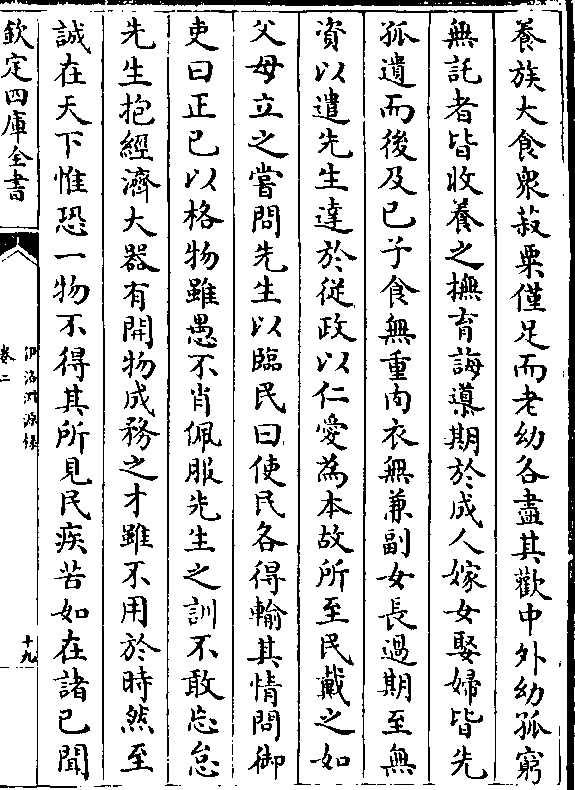 養族大食衆菽粟僅足而老幼各盡其歡中外幼孤窮
無託者皆收養之撫育誨導期於成人嫁女娶婦皆先
孤遺而後及已子食無重肉衣無兼副女長過期至無
資以遣先生達於從政以仁愛為本故所至民戴之如
父母立之嘗問先生以臨民曰使民各得輸其情問御
吏曰正已以格物雖愚不肖佩服先生之訓不敢忘怠
先生抱經濟大器有開物成務之才雖不用於時然至
誠在天下惟恐一物不得其所見民疾苦如在諸已聞
欽定四庫全書
伊洛淵源録
卷二
十九